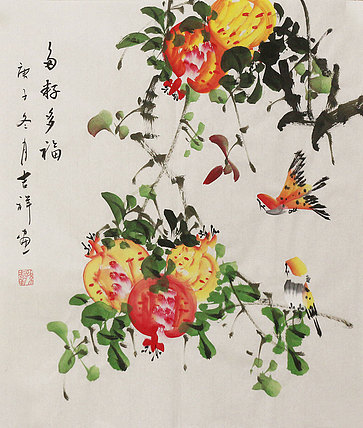 多籽多福
庚子冬月吉祥畫